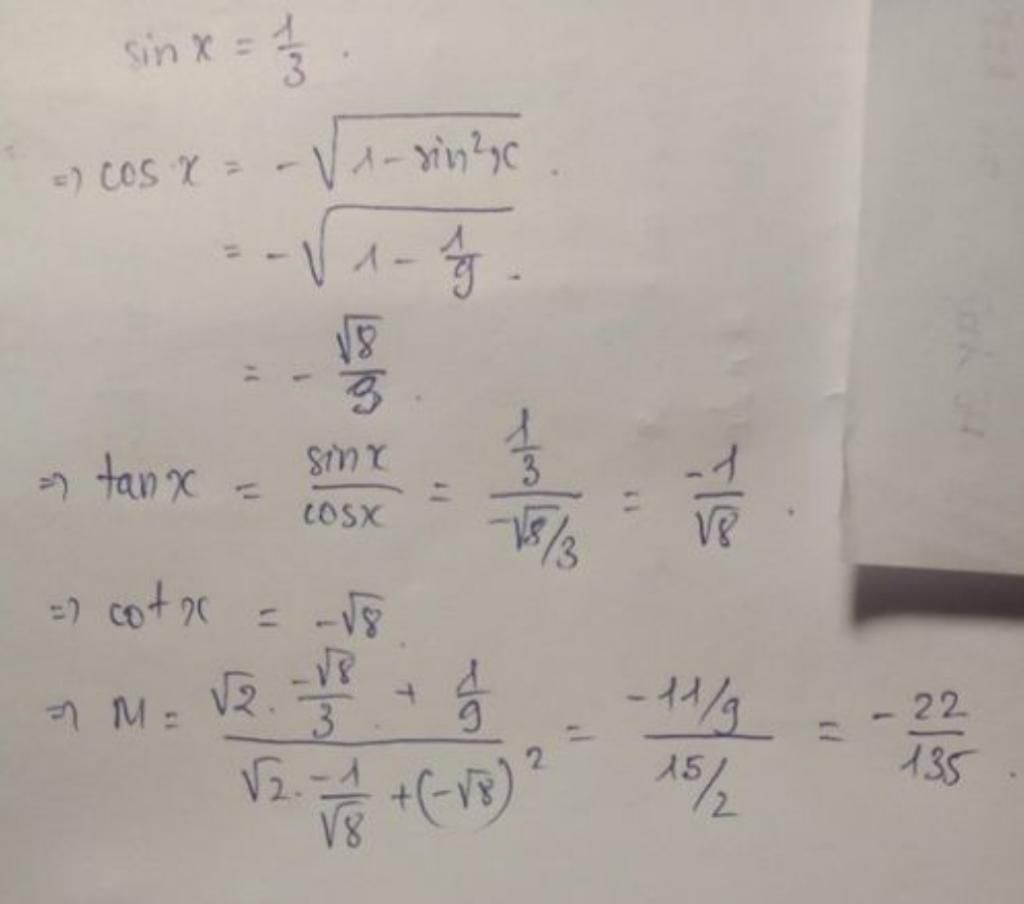 sin x = 1/3 .
=> cos x = -√(1 - sin²x) .
= -√(1 - 1/9) .
= - √8/9 .
=> tan x = sin x/cos x = (1/3)/(-√8/3) = -1/√8 .
=> cot x = -√8 .
=> M = (√2 . -√8/3 + 1/9)/(√2 . -1/√8 + (-√8)²) = (-11/9)/(15/2) = - 22/135 .